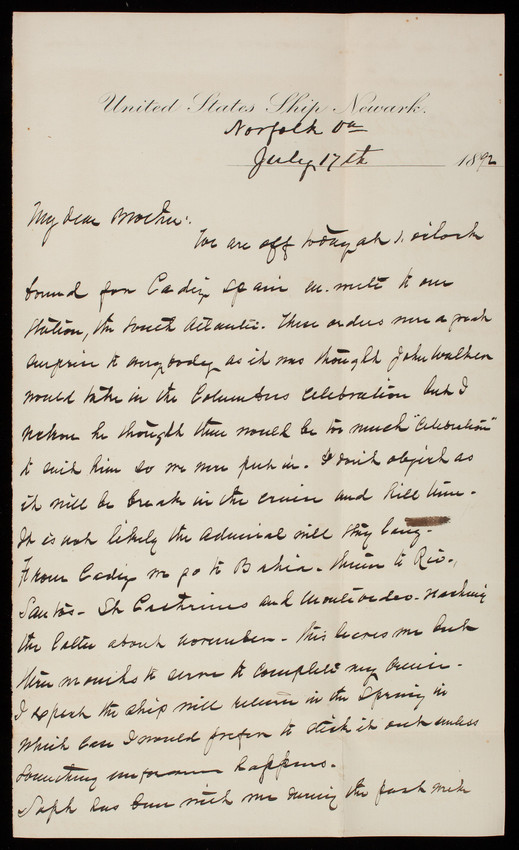 United States Ship Newark.
Norfolk Va
July 17th 1892
My dear Mother:
We are off today at 1. o'clock
bound for Cadiz Spain en. route to our
Station, the South Atlantic. These orders were a great
surprise to everybody as it was thought John Walker
would take in the Columbus celebration but I
reckon he thought there would be too much "celebration"
to suit him so we were put in. I don't object as
it will be break in the cruise and kill time.
It is not likely the Admiral will stay long.
From Cadiz we go to Bahia. thence to Rio.,
Santos - St Catherines and Montevideo. reaching
the latter about November. This leaves me but
three months to serve to complete my cruise.
I expect the ship will return in the Spring in
which case I would prefer to stick it out unless
something unforseen happens.
Soph has been with me during the past week